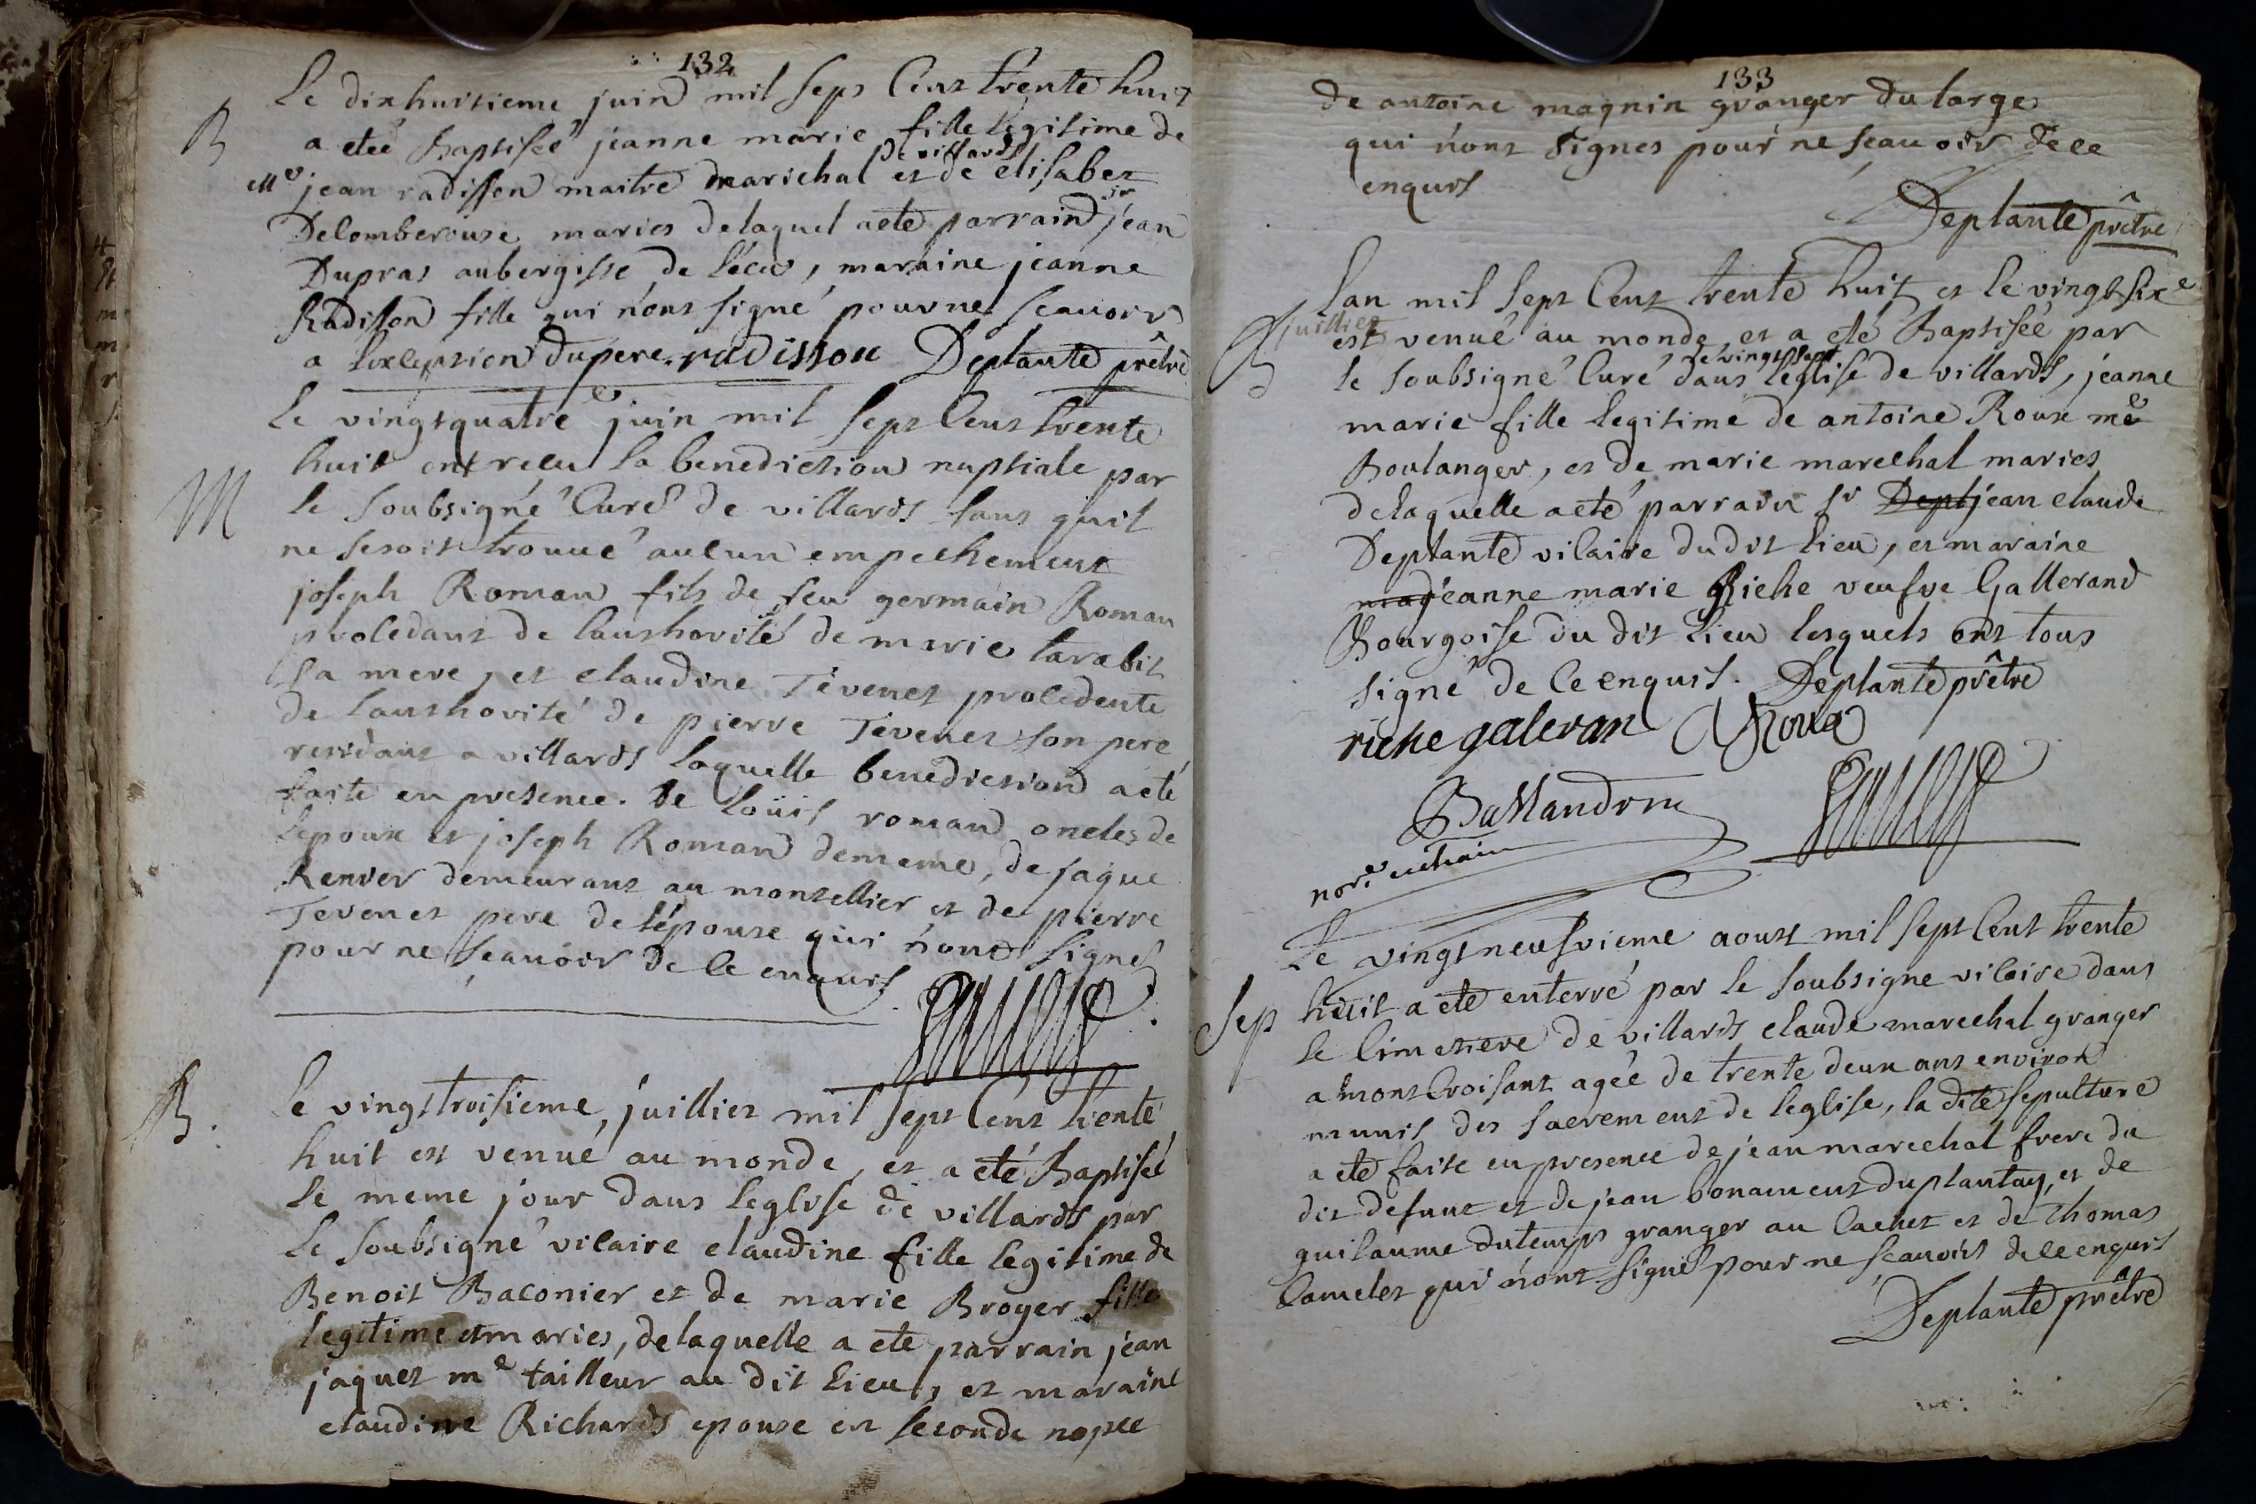 132
Le dixhuitieme juin mil sept Cent trente huit
B
a eteé Baptisée jeanne marie fille legitime de
de villards
Me jean radisson maitre marichal et de elisabet
sr
Delomberouse maries delaquel aete parrain jean
Dupras aubergiste de l'écu, maraine jeanne
Radison fille qui n'ont signé pour ne scauoir
a l'exception du pere. radisson Deplante prêtre
Le vingtquatre juin mil sept Cent trente
huit ont recu la benediction nuptiale par
M
le soubsigné Curé de villards sans quil
ne se soit trouué aucun empechement
joseph Roman fils de feu germain Roman
procedant de lauthorité de marie tarabit
sa mere, et claudine Tevenet procedente
de lauthorité de pierre Tevenet son pere
residant a villards laquelle benediction a eté
faite en presence de Loüis roman oncles de
lepoux et joseph Roman dememe, de jaque
Renver demeurant au montellier et de pierre
Tevenet pere de l'épouse qui n'ont signes
pour ne sçauoir de ce enquis
B.
Le vingttroisieme, juillet mil sept Cent trente
huit est venué au monde, et a eté Baptisée
le meme jour dans leglise de villards par
le soubsigné vicaire claudine fille legitime de
Benoit Baconier et de marie Broyer fille
legitime et maries, delaquelle a ete parrain jean
jaquet me tailleur au dit Lieu, et maraine
claudine Richards epouse en seconde nopce
133
de antoine magnin granger du large
qui n'ont signes pour ne scauoir de ce
enquis
Deplante prêtre
Lan mil sept Cent trente huit et le vingtsixe
juillet
B
est venué au monde, et a eté Baptisée par
le vingtsept
le soubsigné Curé dans l'église de villards, jeanne
marie fille legitime de antoine Roux me
Boulanger, et de marie marechal maries
delaquelle aeté parrain sr Depl jean claude
Deplante vicaire du dit Lieu, et maraine
mag jeanne marie Riche veufve Gallerand
Bourgoise du dit Lieu lesquels ont tous
signé de ce enquis. Deplante prêtre
riche galeran A Roux
Ballandrin
Le vingtneufvieme aoust mil sept Cent trente
Sep
huit a eté enterré par le soubsigne vicaire dans
le Cimetiere de villards claude marechal granger
a mont Croisant ageé de trente deux ans environ
munit des sacrement de leglise, la dite sepulture
a eté faite en presence de jean marechal frere du
dit defunt et de jean bonament du plantay, et de
guilaume dutemps granger au Cachet et de thomas
Camelet qui n'ont signé pour ne scauoir de ce enquis
Deplante prêtre